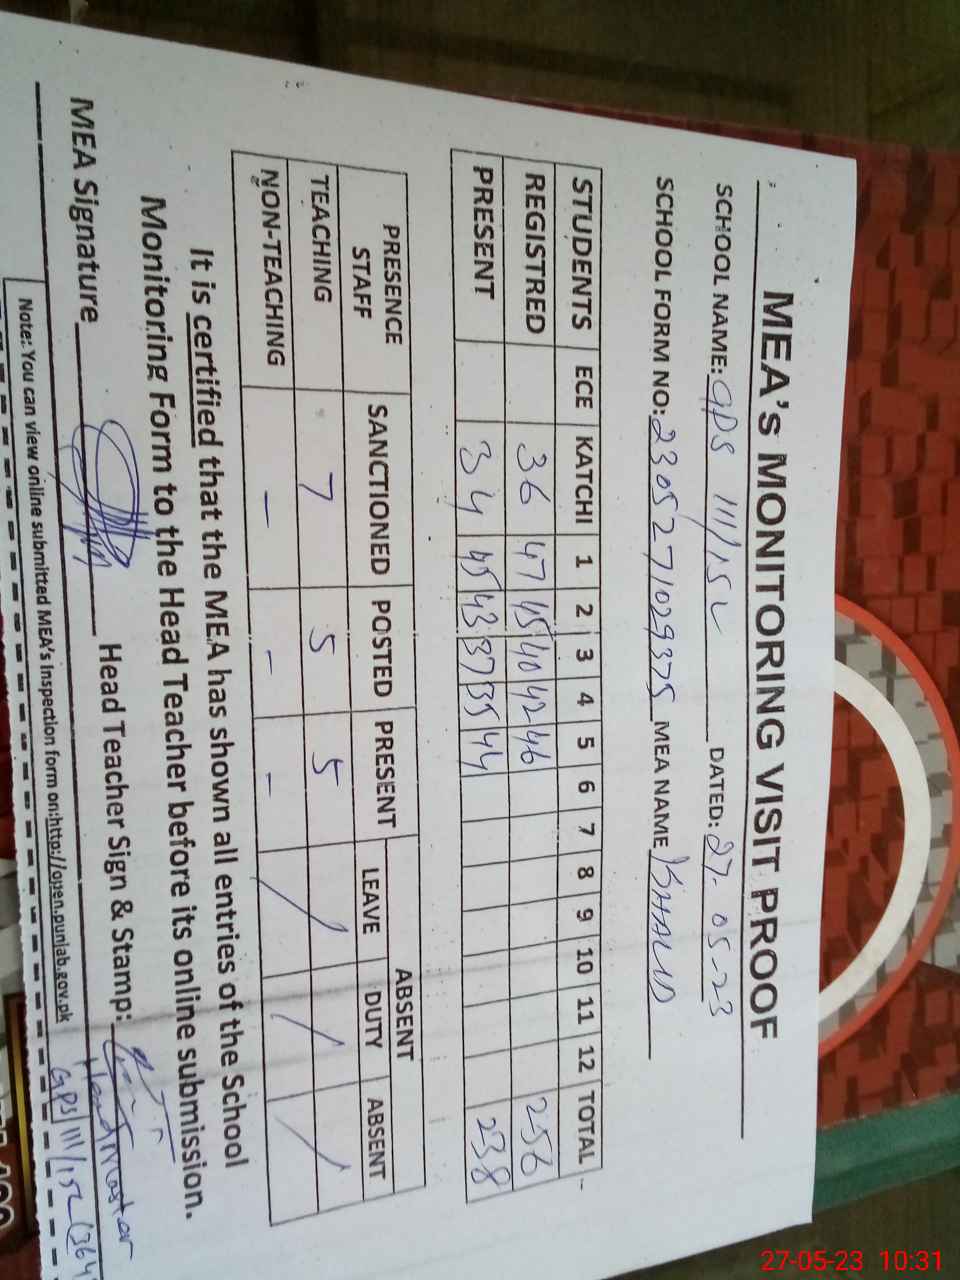 MEA's MONITORING VISIT PROOF
SCHOOL NAME: GPS 111/15L DATED: 27-05-23
SCHOOL FORM NO: 2305271029375 MEA NAME KHALID
STUDENTS ECE KATCHI 1 2 3 4 5 6 7 8 9 10 11 12 TOTAL
REGISTRED 36 47 45 40 42 46 256
PRESENT 34 45 43 37 35 44 238
PRESENCE STAFF SANCTIONED POSTED PRESENT ABSENT
LEAVE DUTY ABSENT
TEACHING 7 5 5 / / /
NON-TEACHING - - -
It is certified that the MEA has shown all entries of the School
Monitoring Form to the Head Teacher before its online submission.
MEA Signature Head Teacher Sign & Stamp:
Headmaster
GPS 111/15L (364
Note:. You can view online submitted MEA's Inspection form on:http://open.punjab.gov.pk
27-05-23 10:31